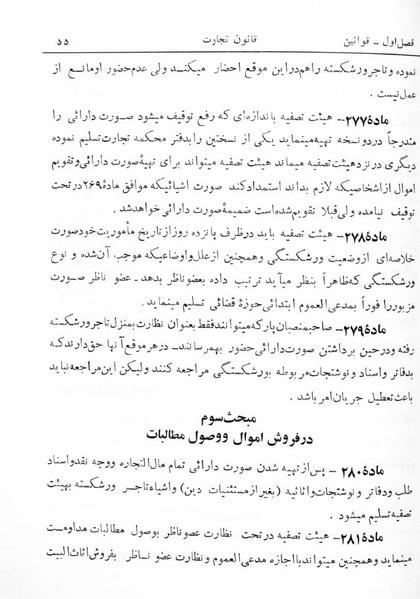 فصل اول ـ قوانین قانون تجارت ۵۵
نموده و تاجر ورشکسته را هم در این موقع احضار میکنند ولی عدم حضور او مانع از
عمل نیست.
مادهٔ ۲۷۷ـ هیئت تصفیه باندازه‌ای که رفع توقیف میشود صورت دارائی را
مندرجاً در دو نسخه تهیه مینماید یکی از نسختین را بدفتر محکمه تجارت تسلیم نموده
دیگری در نزد هیئت تصفیه میماند هیئت تصفیه میتواند برای تهیهٔ صورت دارائی و تقویم
اموال از اشخاصیکه لازم بداند استمداد کند صورت اشیائیکه موافق مادهٔ ۲۶۹ در تحت
توقیف نیامده ولی قبلا تقویم شده است ضمیمهٔ صورت دارائی خواهد شد.
مادهٔ ۲۷۸ـ هیئت تصفیه باید در ظرف پانزده روز از تاریخ مأموریت خود صورت
خلاصه‌ای از وضعیت ورشکستگی و همچنین از علل و اوضاعیکه موجب آن شده و نوع
ورشکستگی که ظاهراً بنظر میآید ترتیب داده بعضو ناظر بدهد ـ عضو ناظر صورت
مزبور را فوراً بمدعی العموم ابتدائی حوزهٔ قضائی تسلیم مینماید.
مادهٔ ۲۷۹ـ صاحبمنصبان پارکه میتوانند فقط بعنوان نظارت بمنزل تاجر ورشکسته
رفته و در حین برداشتن صورت دارائی حضور بهمرسانند ـ در هر موقع آنها حق دارند که
بدفاتر و اسناد و نوشتجات مربوطه بورشکستگی مراجعه کنند ولیکن این مراجعه نباید
باعث تعطیل جریان امر باشد.
مبحث سوم
در فروش اموال و وصول مطالبات
مادهٔ ۲۸۰ ـ پس از تهیه شدن صورت دارائی تمام مال‌التجاره و وجه نقد و اسناد
طلب و دفاتر و نوشتجات و اثاثیه (بغیر از مستثنیات دین) و اشیاء تاجر ورشکسته بهیئت
تصفیه تسلیم میشود.
مادهٔ ۲۸۱ ـ هیئت تصفیه در تحت نظارت عضو ناظر بوصول مطالبات مداومت
مینماید و همچنین میتواند با اجازه مدعی العموم و نظارت عضو ناظر بفروش اثاث البیت